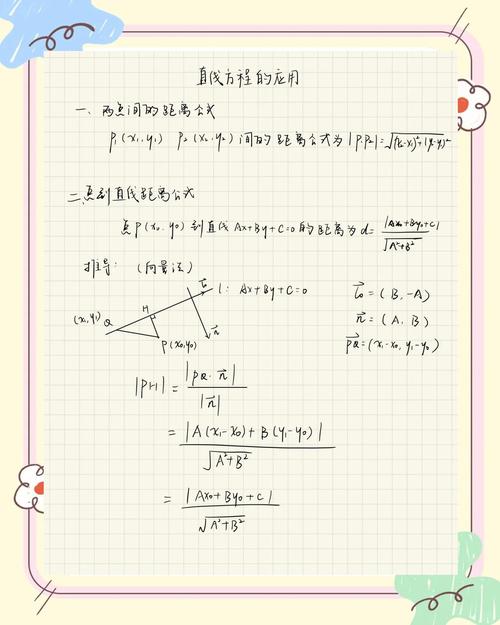 直线方程的应用
一、两点间的距离公式
P₁(x₁,y₁) P₂(x₂,y₂)间的距离公式为|P₁P₂|=√(x₂-x₁)²+(y₂-y₁)²
二、点到直线距离公式
点P(x₀,y₀)到直线Ax+By+C=0的距离为d=|Ax₀+By₀+C|/√A²+B²
推导:(向量法)
l: Ax+By+C=0
(x₁,y₁) Q
H
P(x₀,y₀)
n⃗
= (B,-A)
n⃗ = (A,B)
PQ⃗ = (x₁-x₀, y₁-y₀)
|PH| = |PQ⃗·n⃗|/|n⃗|
= |A(x₁-x₀)+B(y₁-y₀)|/√A²+B²
= |Ax₀+By₀+C|/√A²+B²